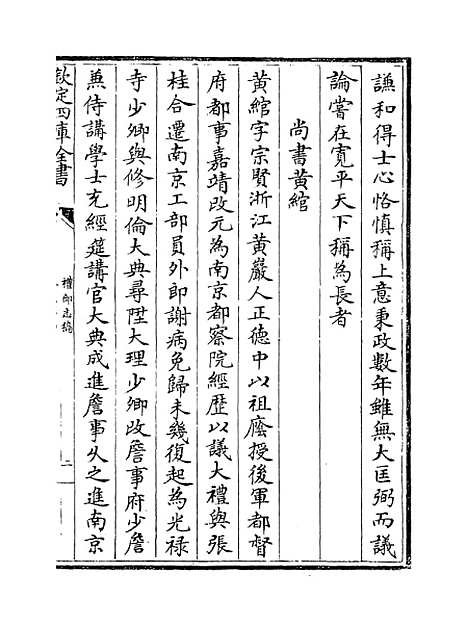 謙和得士心恪慎稱上意秉政數年雖無大匡弼而議
論嘗在寛平天下稱為長者
尚書黄綰
黄綰字宗賢浙江黄巖人正德中以祖廕授後軍都督
府都事嘉靖改元為南京都察院經歴以議大禮與張
桂合遷南京工部員外郎謝病免歸未幾復起為光禄
寺少卿與修明倫大典尋陞大理少卿改詹事府少詹
兼侍講學士充經筵講官大典成進詹事乆之進南京
欽定四庫全書
禮部志稿
二